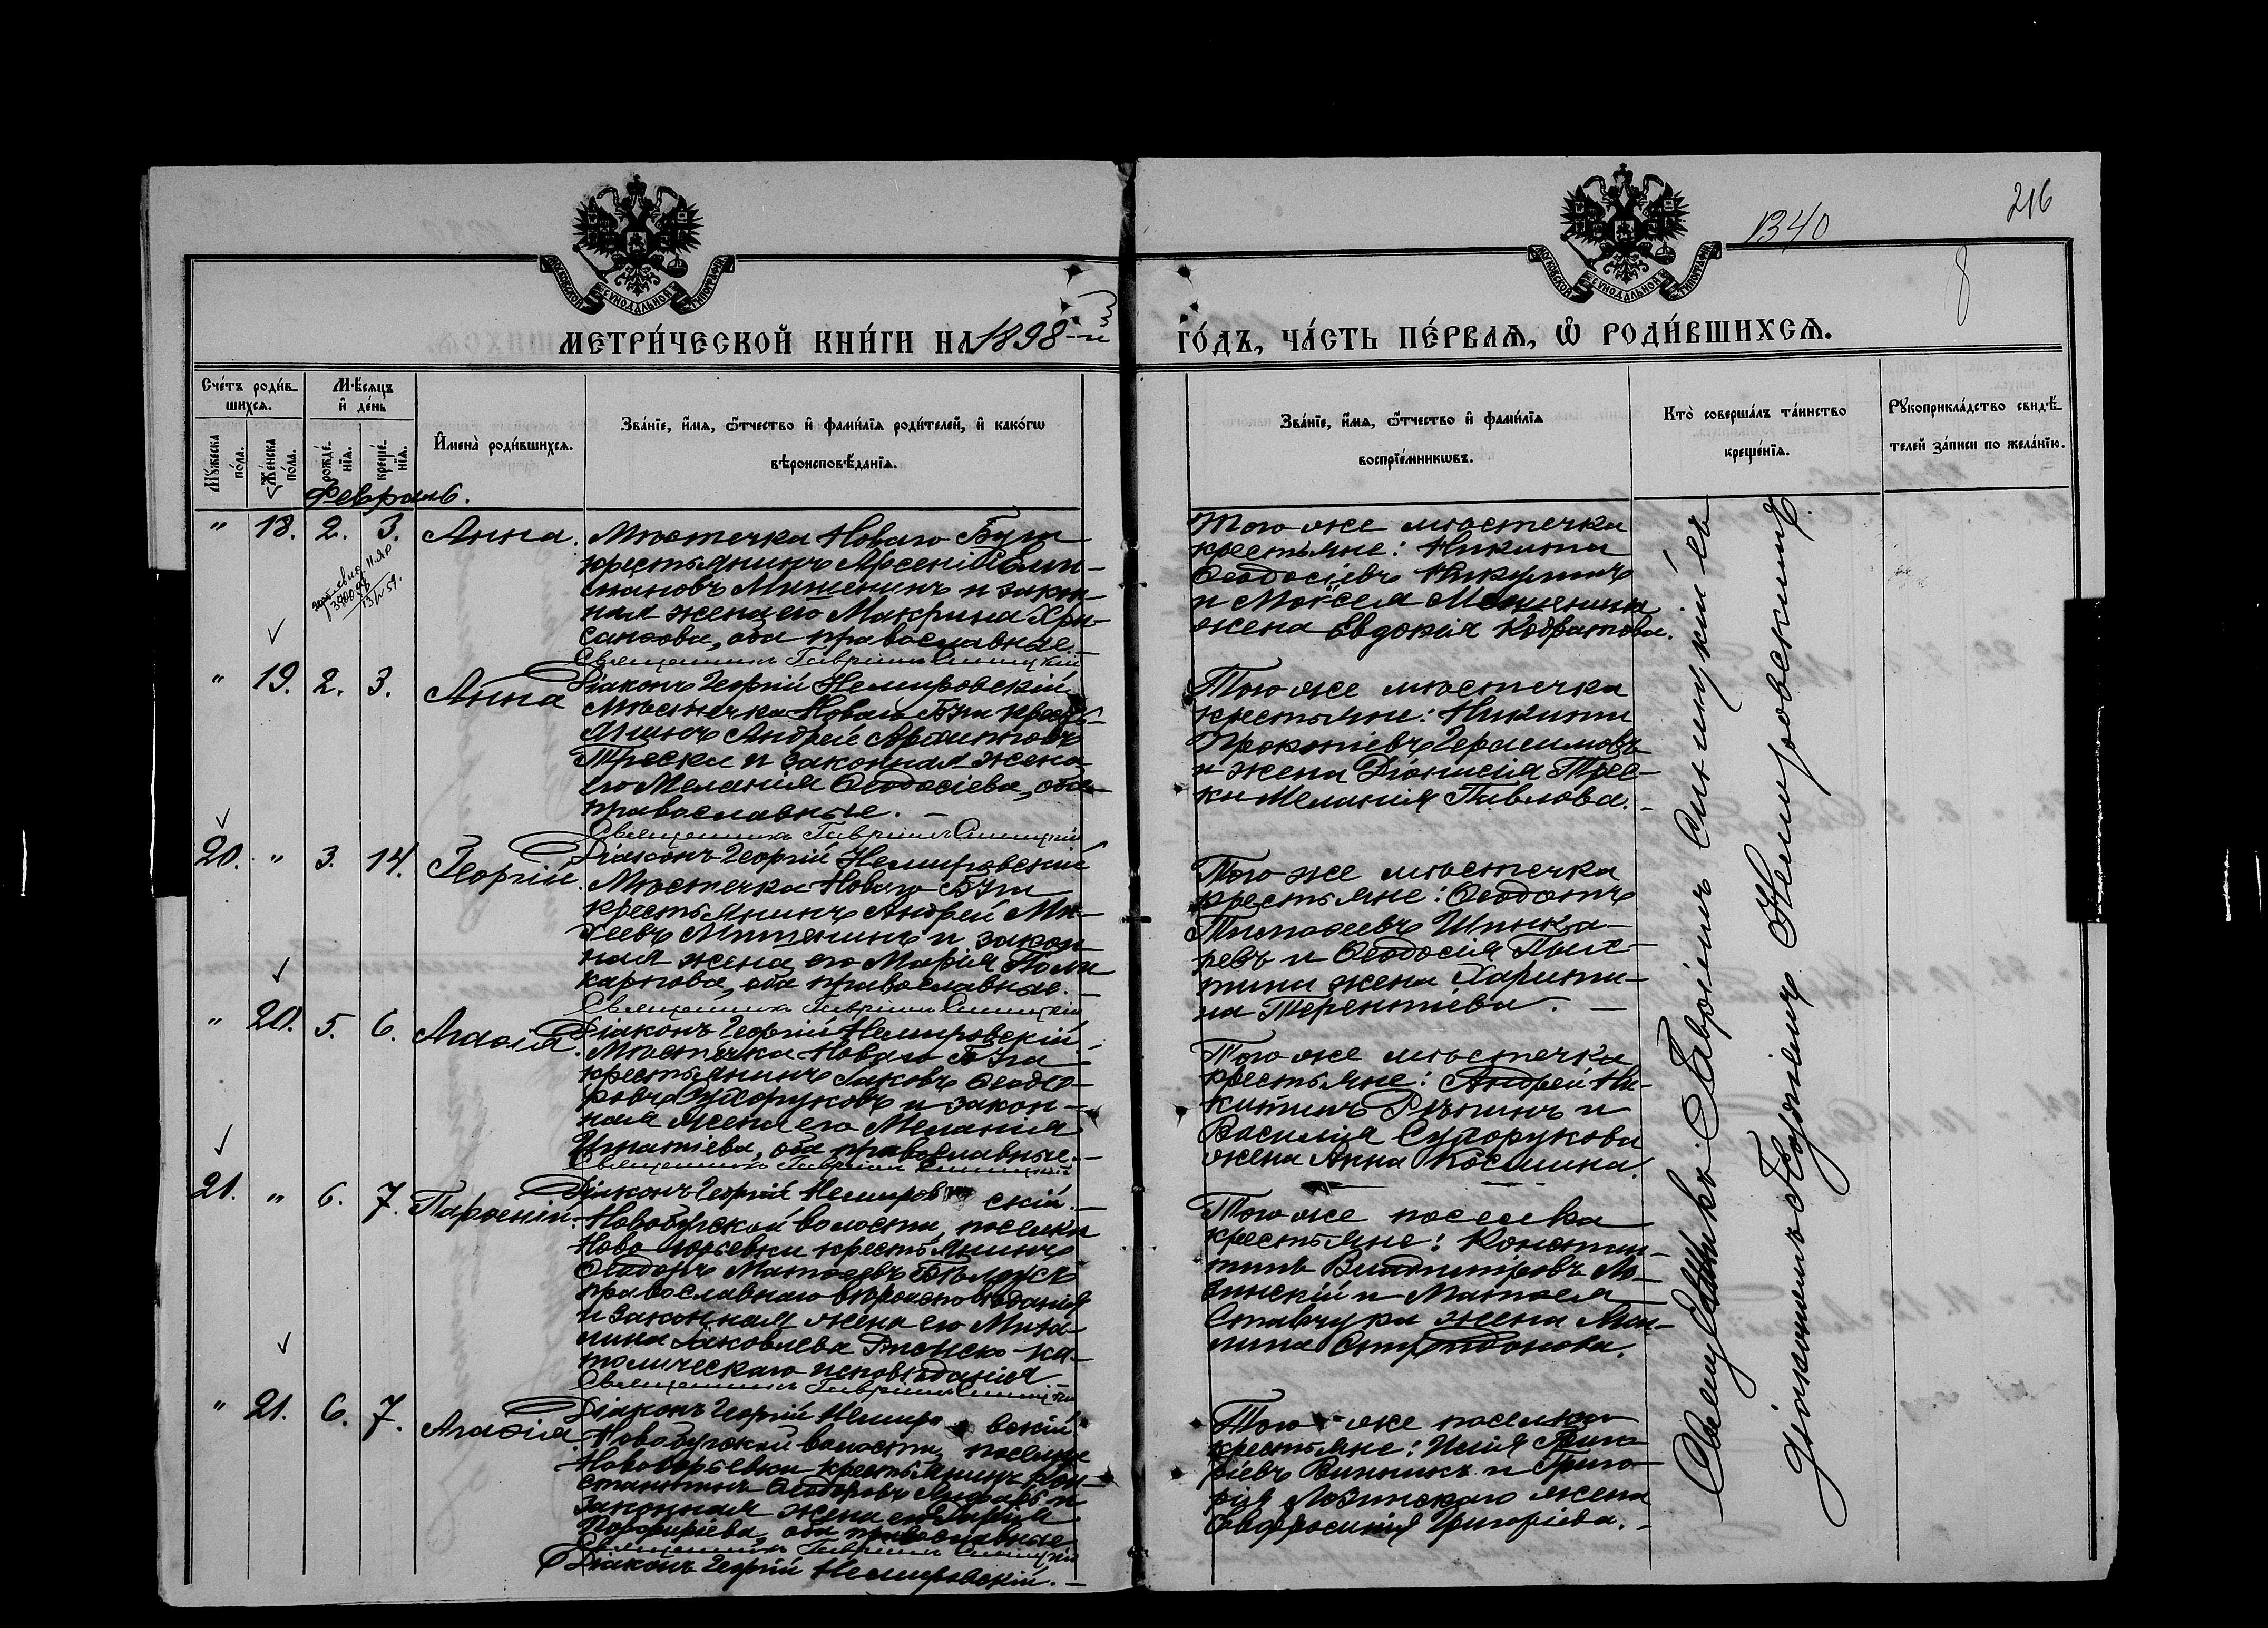 1340
216
8
МОСКОВСКОЙ СУНОДАЛЬНОЙ ТИПОГРАФІИ
МОСКОВСКОЙ СУНОДАЛЬНОЙ ТИПОГРАФІИ
МЕТРИ́ЧЕСКОЙ КНИ́ГИ НА 1898-й
ГО́ДЪ, ЧА́СТЬ ПЕ́РВАѦ, Ѡ҆ РОДИ́ВШИХСѦ.
Сче́тъ роди́в-
шихсѧ.
Мѣ́сяцъ
и҆ де́нь
Мꙋ́жеска по́ла.
Же́нска по́ла.
рожде́нїѧ.
креще́нїѧ.
И҆мена̀ роди́вшихсѧ.
Зва́нїе, и҆́мѧ, ѻ҆́тчество и҆ фамі́лїѧ роди́телей, и҆ како́гѡ
вѣроисповѣ́данїѧ.
Зва́нїе, и҆́мѧ, ѻ҆́тчество и҆ фамі́лїѧ
воспрїе́мникѡвъ.
Кто̀ соверша́лъ та́инство
креще́нїѧ.
Рꙋкоприкла́дство свидѣ́-
телей за́писи по жела́нїю.
Февраль.
" 18. 2. 3. Анна. Мѣстечка Новаго Буга
крестьянинъ Арсеній
Митенинъ и закон-
ная жена его Макрина Хри-
санѳова, оба православные.
Священникъ Гавріилъ Синицкій
Діаконъ Георгій Немировскій
Того же мѣстечка
крестьяне: Никита
Ѳеодосіевъ Никулинъ
и Моѵсея Митенина
жена Евдокія Кодратова.
" 19. 2. 3. Анна
Мѣстечка Новаго Буга кресть-
янинъ Андрей
Треска и законная жена
его Меланія Ѳеодосіева, оба
православные.
Священникъ Гавріилъ Синицкій
Діаконъ Георгій Немировскій
Того же мѣстечка
крестьяне: Никита
Прокопіевъ Герасимовъ
и жена Діонисія Трес-
ки Меланія Павлова.
20. " 3. 14. Георгій.
Мѣстечка Новаго Буга
крестьянинъ Андрей Ми-
хеевъ Митенинъ и закон-
ная жена его Марія Поли-
карпова, оба православные.
Священникъ Гавріилъ Синицкій
Діаконъ Георгій Немировскій
Того же мѣстечка
крестьяне: Ѳеодотъ
Тимоѳеевъ Шинка-
ревъ и Ѳеодосія
жена Харити-
на Терентіева.
" 20. 5. 6. Агаѳія.
Мѣстечка Новаго Буга
крестьянинъ Іаковъ Ѳеодо-
ровъ Сухоруковъ и закон-
ная жена его Меланія
Игнатіева, оба православные.
Священникъ Гавріилъ Синицкій
Діаконъ Георгій Немировскій.
Того же мѣстечка
крестьяне: Андрей Ни-
китинъ Рѣпинъ и
Василія Сухорукова
жена Анна Космина.
21. " 6. 7. Парѳеній.
Новобугской волости, поселка
Ново-Юрьевки крестьянинъ
Ѳеодоръ Матѳеевъ
православнаго вѣроисповѣданія
и законная жена его Миха-
лина Іаковлева Римско-ка-
толическаго исповѣданія
Священникъ Гавріилъ Синицкій
Діаконъ Георгій Немировскій
Того же поселка
крестьяне: Констан-
тинъ Владиміровъ Ло-
зинскій и Матѳея
Ставчура жена Ма-
нина Спиридонова.
" 21. 6. 7. Агаѳія.
Новобугской волости, поселка
крестьянинъ Кон-
стантинъ Ѳеодоровъ и
законная жена его Дарія
Порфиріева, оба православные
Священникъ Гавріилъ Синицкій
Діаконъ Георгій Немировскій.
Того же поселка
крестьяне: Илія Григо-
ріевъ Винникъ и Григо-
рія Лозинскаго жена
Евфросинія Григоріева.
Священникъ Гавріилъ Синицкій съ
діакономъ Георгіемъ Немировскимъ.